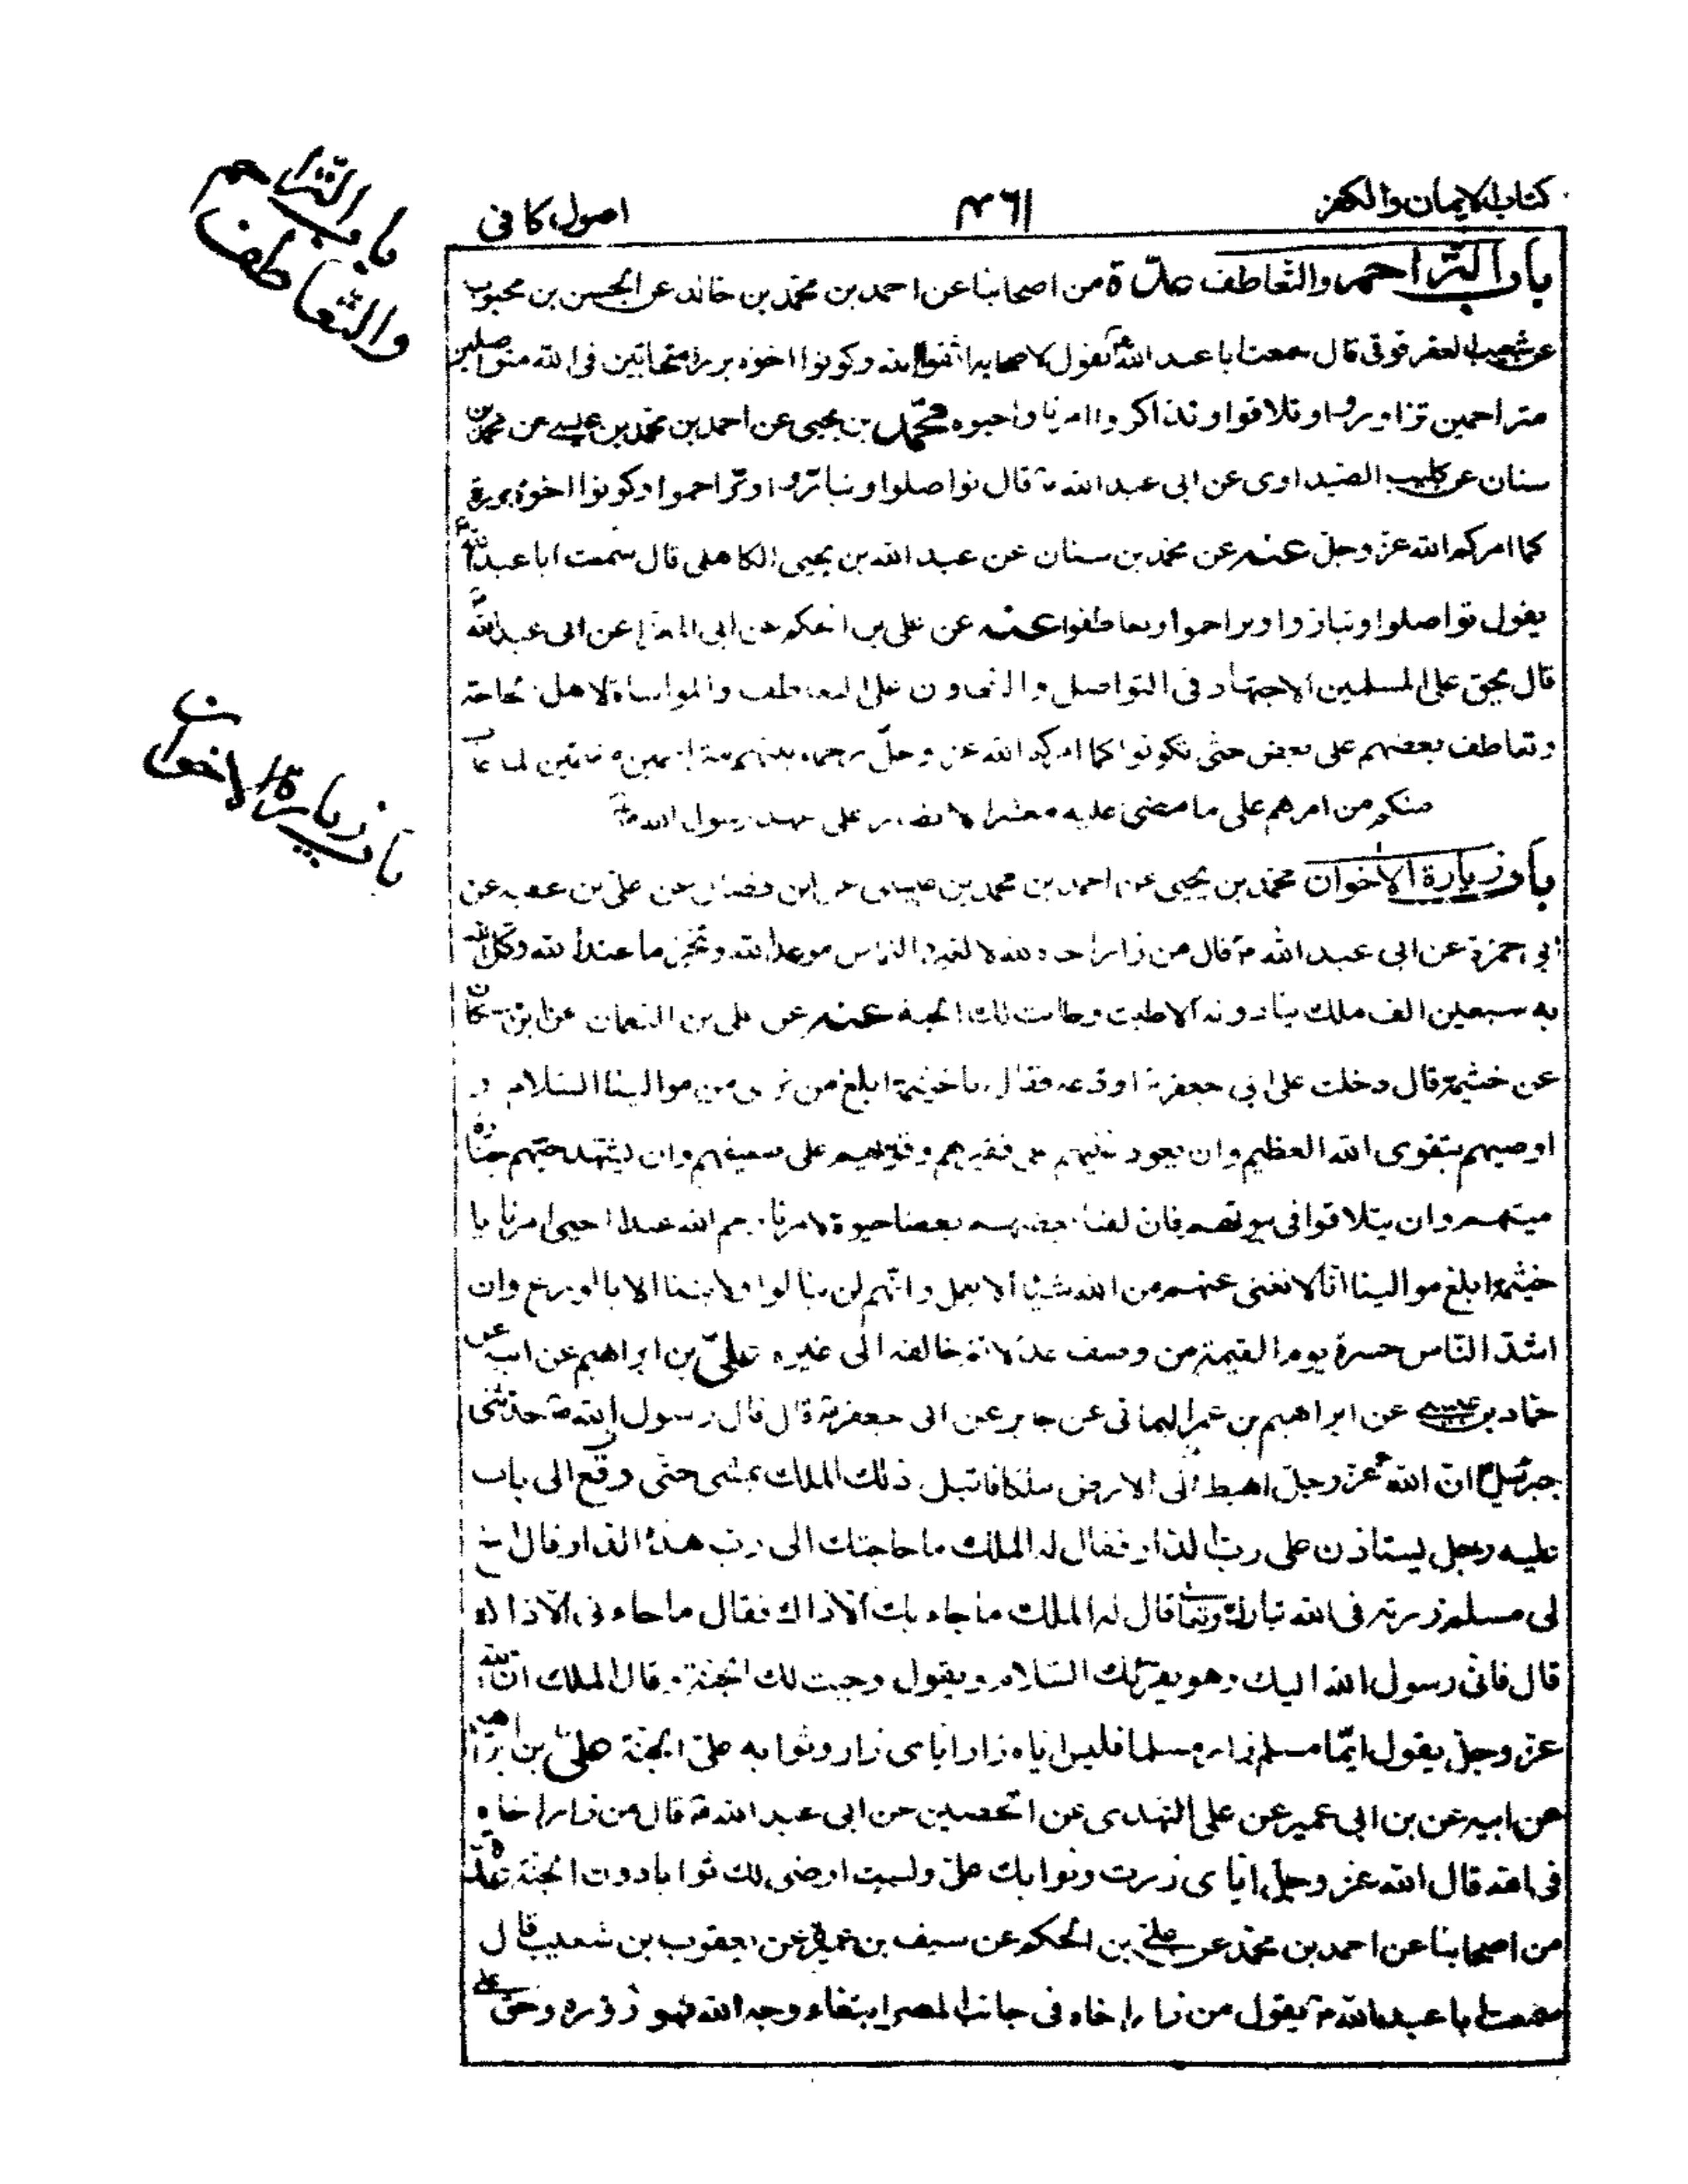 كتاب الايمان والكفر
٤٦١
اصول كافى
باب التراحم والتعاطف
باب زيارة الاخوان
باب التراحم والتعاطف عدة من اصحابنا عن احمد بن محمد بن خالد عن الحسن بن محبوب
عن شعيب العقرقوقى قال سمعت ابا عبد الله ع يقول لاصحابه اتقوا الله وكونوا اخوة بررة متحابين فى الله متواصلين
متراحمين تزاوروا وتلاقوا وتذاكروا امرنا واحيوه محمد بن يحيى عن احمد بن محمد بن عيسى عن محمد بن
سنان عن كليب الصيداوى عن ابى عبد الله ع قال تواصلوا وتباروا وتراحموا وكونوا اخوة بررة
كما امركم الله عز وجل عنه عن محمد بن سنان عن عبد الله بن يحيى الكاهلى قال سمعت ابا عبد الله ع
يقول تواصلوا وتباروا وتراحموا وتعاطفوا عنه عن على بن الحكم عن ابى المغرا عن ابى عبد الله ع
قال يحق على المسلمين الاجتهاد فى التواصل والتعاون على التعاطف والمواساة لاهل الحاجة
وتعاطف بعضهم على بعض حتى تكونوا كما امركم الله عز وجل رحماء بينهم متراحمين مغتمين لما غاب
عنكم من امرهم على ما مضى عليه معشر الانصار على عهد رسول الله ص
باب زيارة الاخوان محمد بن يحيى عن احمد بن محمد بن عيسى عن ابن فضال عن على بن عقبة عن
ابى حمزة عن ابى عبد الله ع قال من زار اخاه لله لا لغيره التماس موعد الله وتنجز ما عند الله وكل الله
به سبعين الف ملك ينادونه الا طبت وطابت لك الجنة عنه عن على بن النعمان عن ابن مسكان
عن خثيمة قال دخلت على ابى جعفر ع اودعه فقال يا خيثمة ابلغ من ترى من موالينا السلام و
اوصيهم بتقوى الله العظيم وان يعود غنيهم على فقيرهم وقويهم على ضعيفهم وان يشهد حيهم جنازة
ميتهم وان يتلاقوا فى بيوتهم فان لقيا بعضهم بعضا حيوة لامرنا رحم الله عبدا احيى امرنا يا
خثيمة ابلغ موالينا انا لا نغنى عنهم من الله شيئا الا بعمل وانهم لن ينالوا ولايتنا الا بالورع وان
اشد الناس حسرة يوم القيمة من وصف عدلا ثم خالفه الى غيره على بن ابراهيم عن ابيه عن
حماد بن عيسى عن ابراهيم بن عمر اليمانى عن جابر عن ابى جعفر ع قال قال رسول الله ص حدثنى
جبرئيل ع ان الله عز وجل اهبط الى الارض ملكا فاقبل ذلك الملك يمشى حتى وقع الى باب
عليه رجل يستاذن على رب الدار فقال له الملك ما حاجتك الى رب هذه الدار قال اخ
لى مسلم زرته فى الله تبارك وتعالى قال له الملك ما جاء بك الا ذاك فقال ما جاء بى الا ذاك
قال فانى رسول الله اليك وهو يقرئك السلام ويقول وجبت لك الجنة وقال الملك ان الله
عز وجل يقول ايما مسلم زار مسلما فليس اياه زار اياى زار وثوابه على الجنة على بن ابراهيم
عن ابيه عن بن ابى عمير عن على النهدى عن الحصين عن ابى عبد الله ع قال من زار اخاه
فى الله قال الله عز وجل اياى زرت وثوابك على ولست ارضى لك ثوابا دون الجنة عدة
من اصحابنا عن احمد بن محمد عن على بن الحكم عن سيف بن عميرة عن يعقوب بن شعيب قال
سمعت ابا عبد الله ع يقول من زار اخاه فى جانب المصر ابتغاء وجه الله فهو زوره وحق على